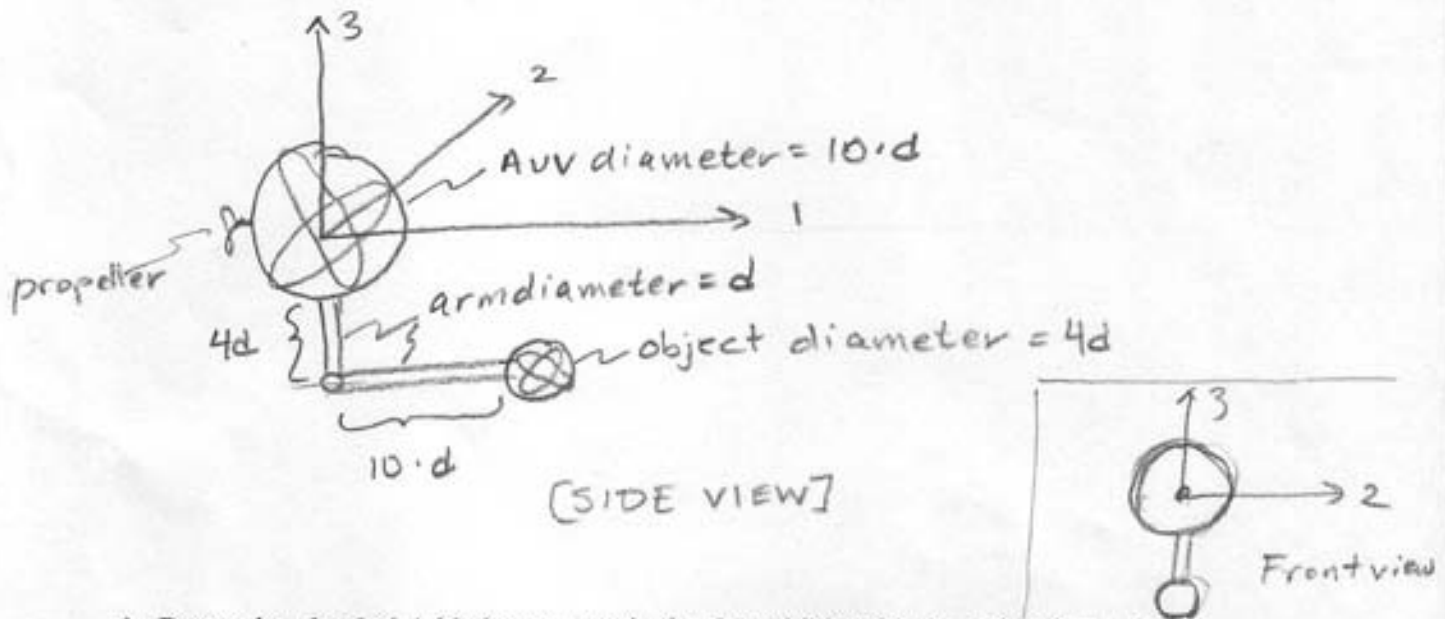 3
2
AUV diameter = 10·d
1
propeller
armdiameter = d
4d
object diameter = 4d
10·d
[SIDE VIEW]
3
2
Front view